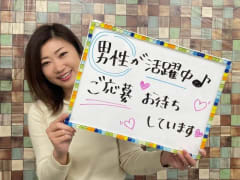 男性が活躍中♪
ご応募
お待ち
しています